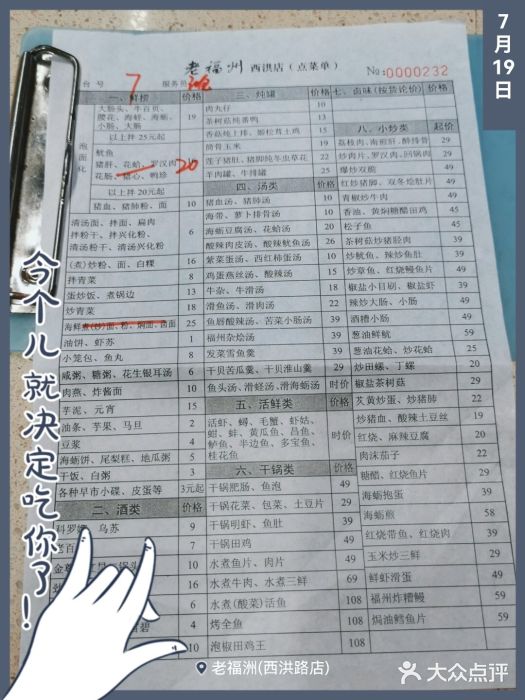 7月19日
老福州 西洪店（点菜单）
台号 7 服务员
No:0000232
一、鲜捞 价格
大肠头、牛百页、
腰花、海蛏、海蛎、 19
小肠、大肠
以上拌 25元起
鱿鱼
猪肝、花蛤、罗汉肉 20
花肠、猪心、鸭珍
以上拌 20元起
猪血、猪肺粉、面 10
清汤面、拌面、扁肉
拌粉干、拌兴化粉、
清汤粉干、清汤兴化粉
(煮)炒粉、面、白粿 16
拌青菜 8
蛋炒饭、煮锅边 13
炒青菜 18
海鲜煮(炒)面、粉、焖面、卤面 25
油饼、虾苏 1
小笼包、鱼丸 8
咸粥、糖粥、花生银耳汤 6
肉燕、炸酱面 10
芋泥、元宵 15
油条、芋果、马旦 2
豆浆 4
海蛎饼、尾梨糕、地瓜粥 5
干饭、白粥 3
各种早市小碟、皮蛋等 3元起
二、酒类 价格
科罗娜、乌苏 9
7
10
16
6
4
10
三、炖罐 价格
肉丸仔 10
茶树菇炖番鸭 13
香菇炖上排、姬松茸土鸡 15
筒骨玉米 19
莲子猪肚、猪脚炖冬虫草花 22
羊肉罐、牛排罐 25
四、汤类 价格
猪血汤、猪肺汤 10
海带、萝卜排骨汤 10
海蛎豆腐汤、花蛤汤 20
酸辣肉皮汤、酸辣鱿鱼汤 26
紫菜蛋汤、西红柿蛋汤 10
鸡蛋燕丝汤、酸辣汤 15
牛杂、牛滑汤 18
滑鱼汤、滑肉汤 22
鱼唇酸辣汤、苦菜小肠汤 39
福州杂烩汤 39
发菜雪鱼羹 29
干贝苦瓜羹、干贝淮山羹 29
鱼头汤、滑蛏汤、滑海蛎汤 时价
五、活鲜类 价格
活虾、蟳、毛蟹、虾姑、
蛏、蚌、黄瓜鱼、昌鱼、
鲈鱼、半边鱼、多宝鱼、 时价
桂花鱼
六、干锅类 价格
干锅肥肠、鱼泡 49
干锅花菜、包菜、土豆片 29
干锅明虾、鱼肚 39
干锅田鸡 49
水煮鱼片、肉片 49
水煮牛肉、水煮三鲜 69
水煮(酸菜)活鱼 108
烤全鱼 108
泡椒田鸡王 108
七、卤味（按货论价） 价格
八、小炒类 起价
荔枝肉、南煎肝、醉排骨 29
炒肉片、罗汉肉、回锅肉 29
爆炒双脆 49
红炒猪脚、双冬烩肚片 49
青椒炒牛肉 49
香油、黄焖糖醋田鸡 45
松子鱼 59
茶树菇炒猪胫肉 39
炒鱿鱼、辣炒鱼片 39
炒章鱼、红烧鳗鱼片 49
椒盐小目刷、椒盐虾 39
辣炒大肠、小肠 49
酒糟小肠 49
葱油鲜鱿 59
葱油花蛤、炒花蛤 25
炒田螺、丁螺 20
椒盐茶树菇 29
芡黄炒蛋、炒猪肺 22
炒猪血、酸辣土豆丝 19
红烧、麻辣豆腐 20
肉沫茄子 22
糖醋、红烧鱼片 29
海蛎抱蛋 39
海蛎煎 58
红烧带鱼、红烧肉 39
玉米炒三鲜 49
鲜虾滑蛋 49
福州炸糟鳗 59
焗油鳕鱼片 59
今个儿就决定吃你了！
老福洲(西洪路店)
大众点评